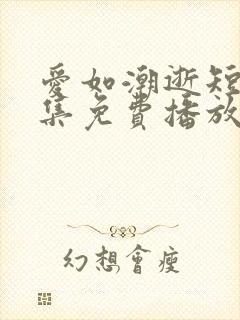 愛如潮逝短
集免費播放
幻想會瘦